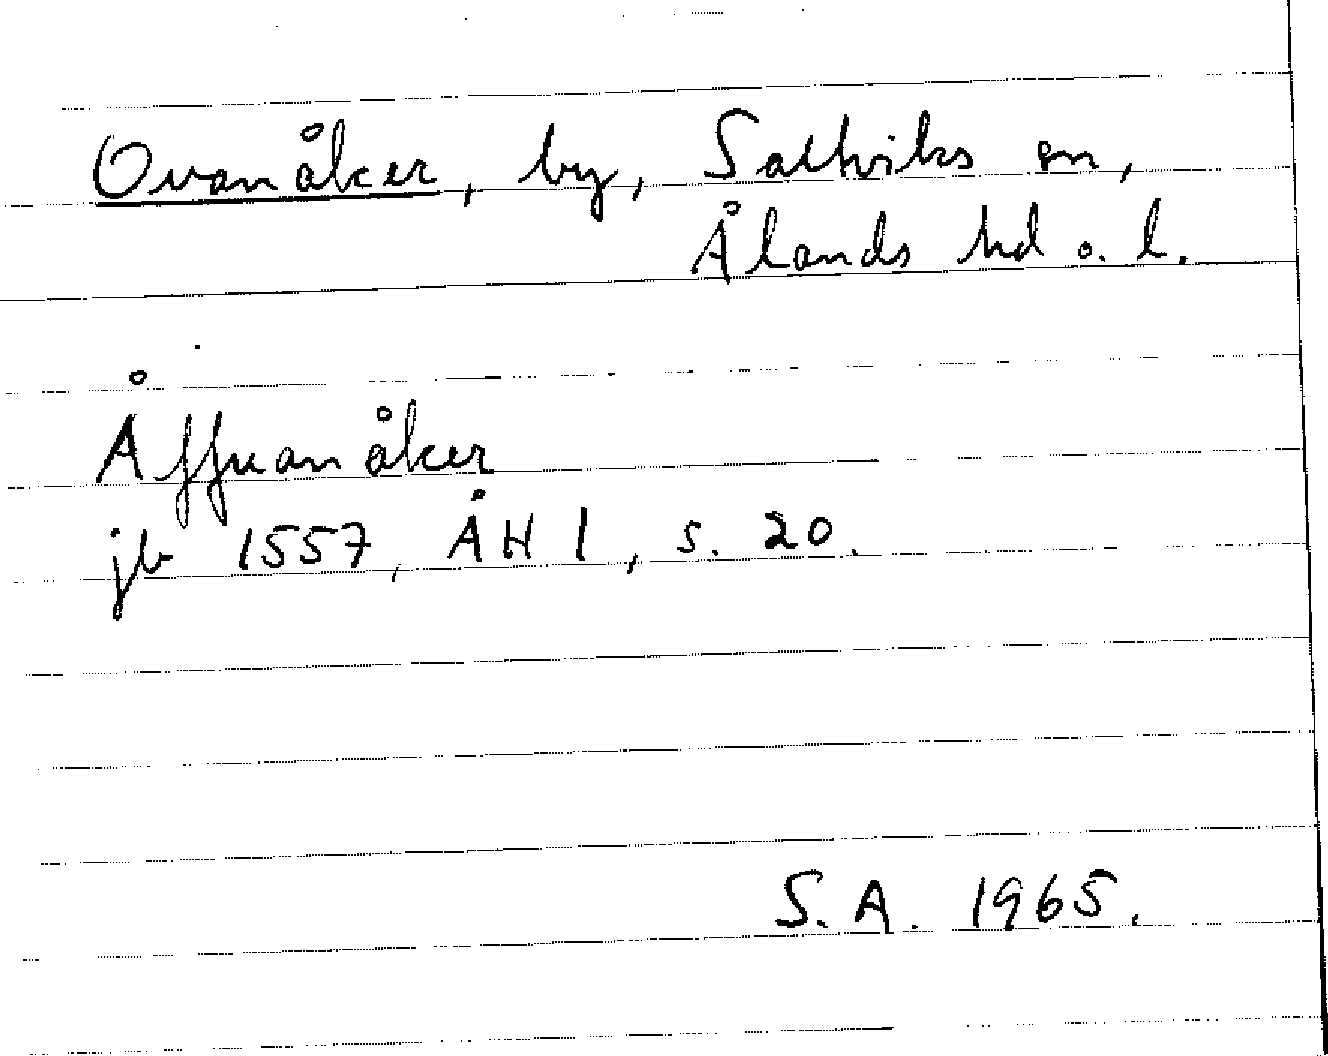 Ovanåker, by, Saltviks sn,
Ålands hd o. l.
Åffuanåker
jb 1557, ÅH 1, s. 20.
S.A. 1965.